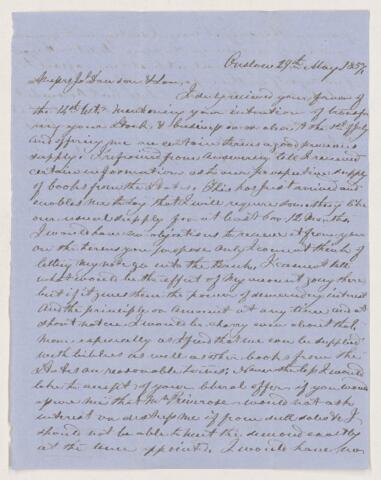 Onslow 29th May 1857
Messrs Js Dawson & Son,
I duly received your favour of
the 14th inst. mentioning your intention of
your Stock & business on or about the 1st of July
and offering me on certain terms a good provincial
supply. I refrained from answering till I received
certain information as to our prospective supply
of books from the States. This has just arrived and
enables me to say that I will require something like
our usual supply for at least 6 or 12 months.
I would have no objections to receive it from you
on the terms you propose only I cannot think of
letting my note go into the Banks. I cannot tell
what would be the effect of my note
but if it gives them the power of demanding interest
and the principle or amount at any time and at
short notice I would be chary even about that.
more especially as I find that we can be supplied
with bibles as well as other books from the
States on reasonable terms. Nevertheless I would
like to accept of your liberal offer if you would
assure me that Mr Primrose would not ask
interest or distress me if from dull sales &c I
should not be able to meet the demand exactly
at the time appointed. I would have no